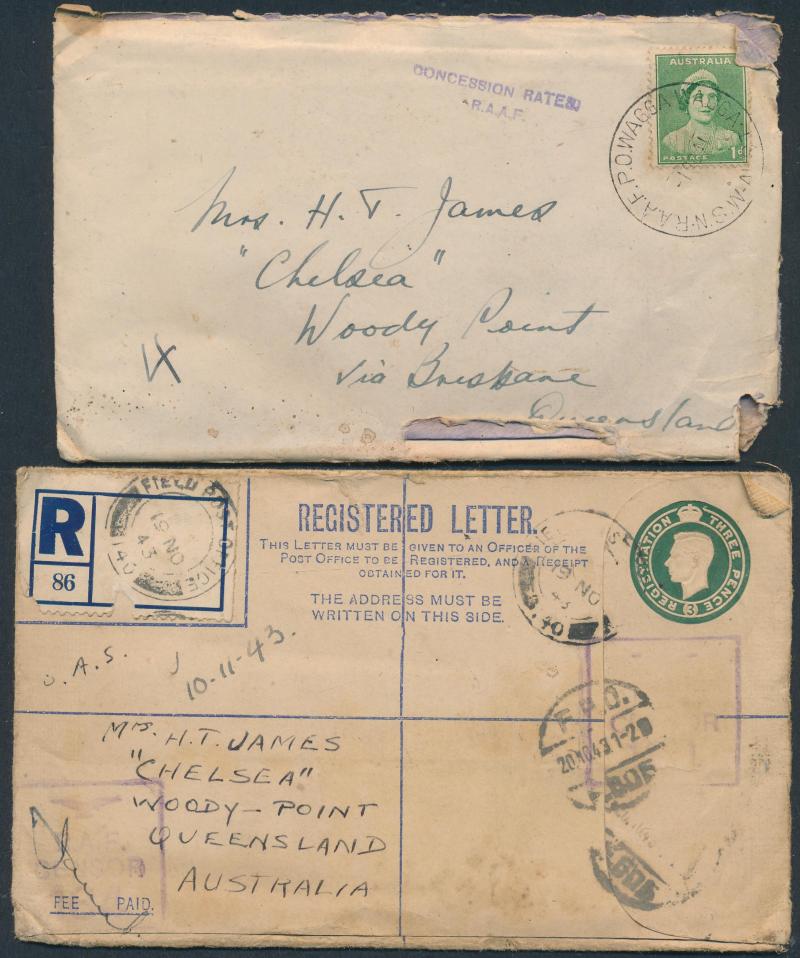 CONCESSION RATE
R.A.A.F.
AUSTRALIA
POSTAGE
1d
R.A.A.F.P.O. WAGGA WAGGA
N.S.W
Mrs. H. T. James
"Chelsea"
Woody Point
Via Brisbane
Queensland
R
86
FIELD POST OFFICE
19 NO
43
REGISTERED LETTER.
THIS LETTER MUST BE GIVEN TO AN OFFICER OF THE
POST OFFICE TO BE REGISTERED, AND A RECEIPT
OBTAINED FOR IT.
THE ADDRESS MUST BE
WRITTEN ON THIS SIDE.
REGISTRATION THREE PENCE
3
19 NO
43
O.A.S.
10-11-43.
F.P.O.
20 NO 43 1-2
Mrs. H.T. JAMES
"CHELSEA"
WOODY-POINT
QUEENSLAND
AUSTRALIA
CENSOR
FEE PAID.